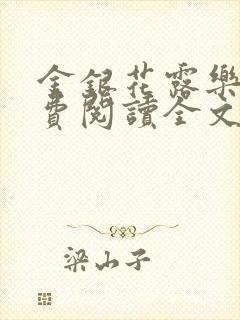 金銀花露樂
費閱讀全文
梁山子